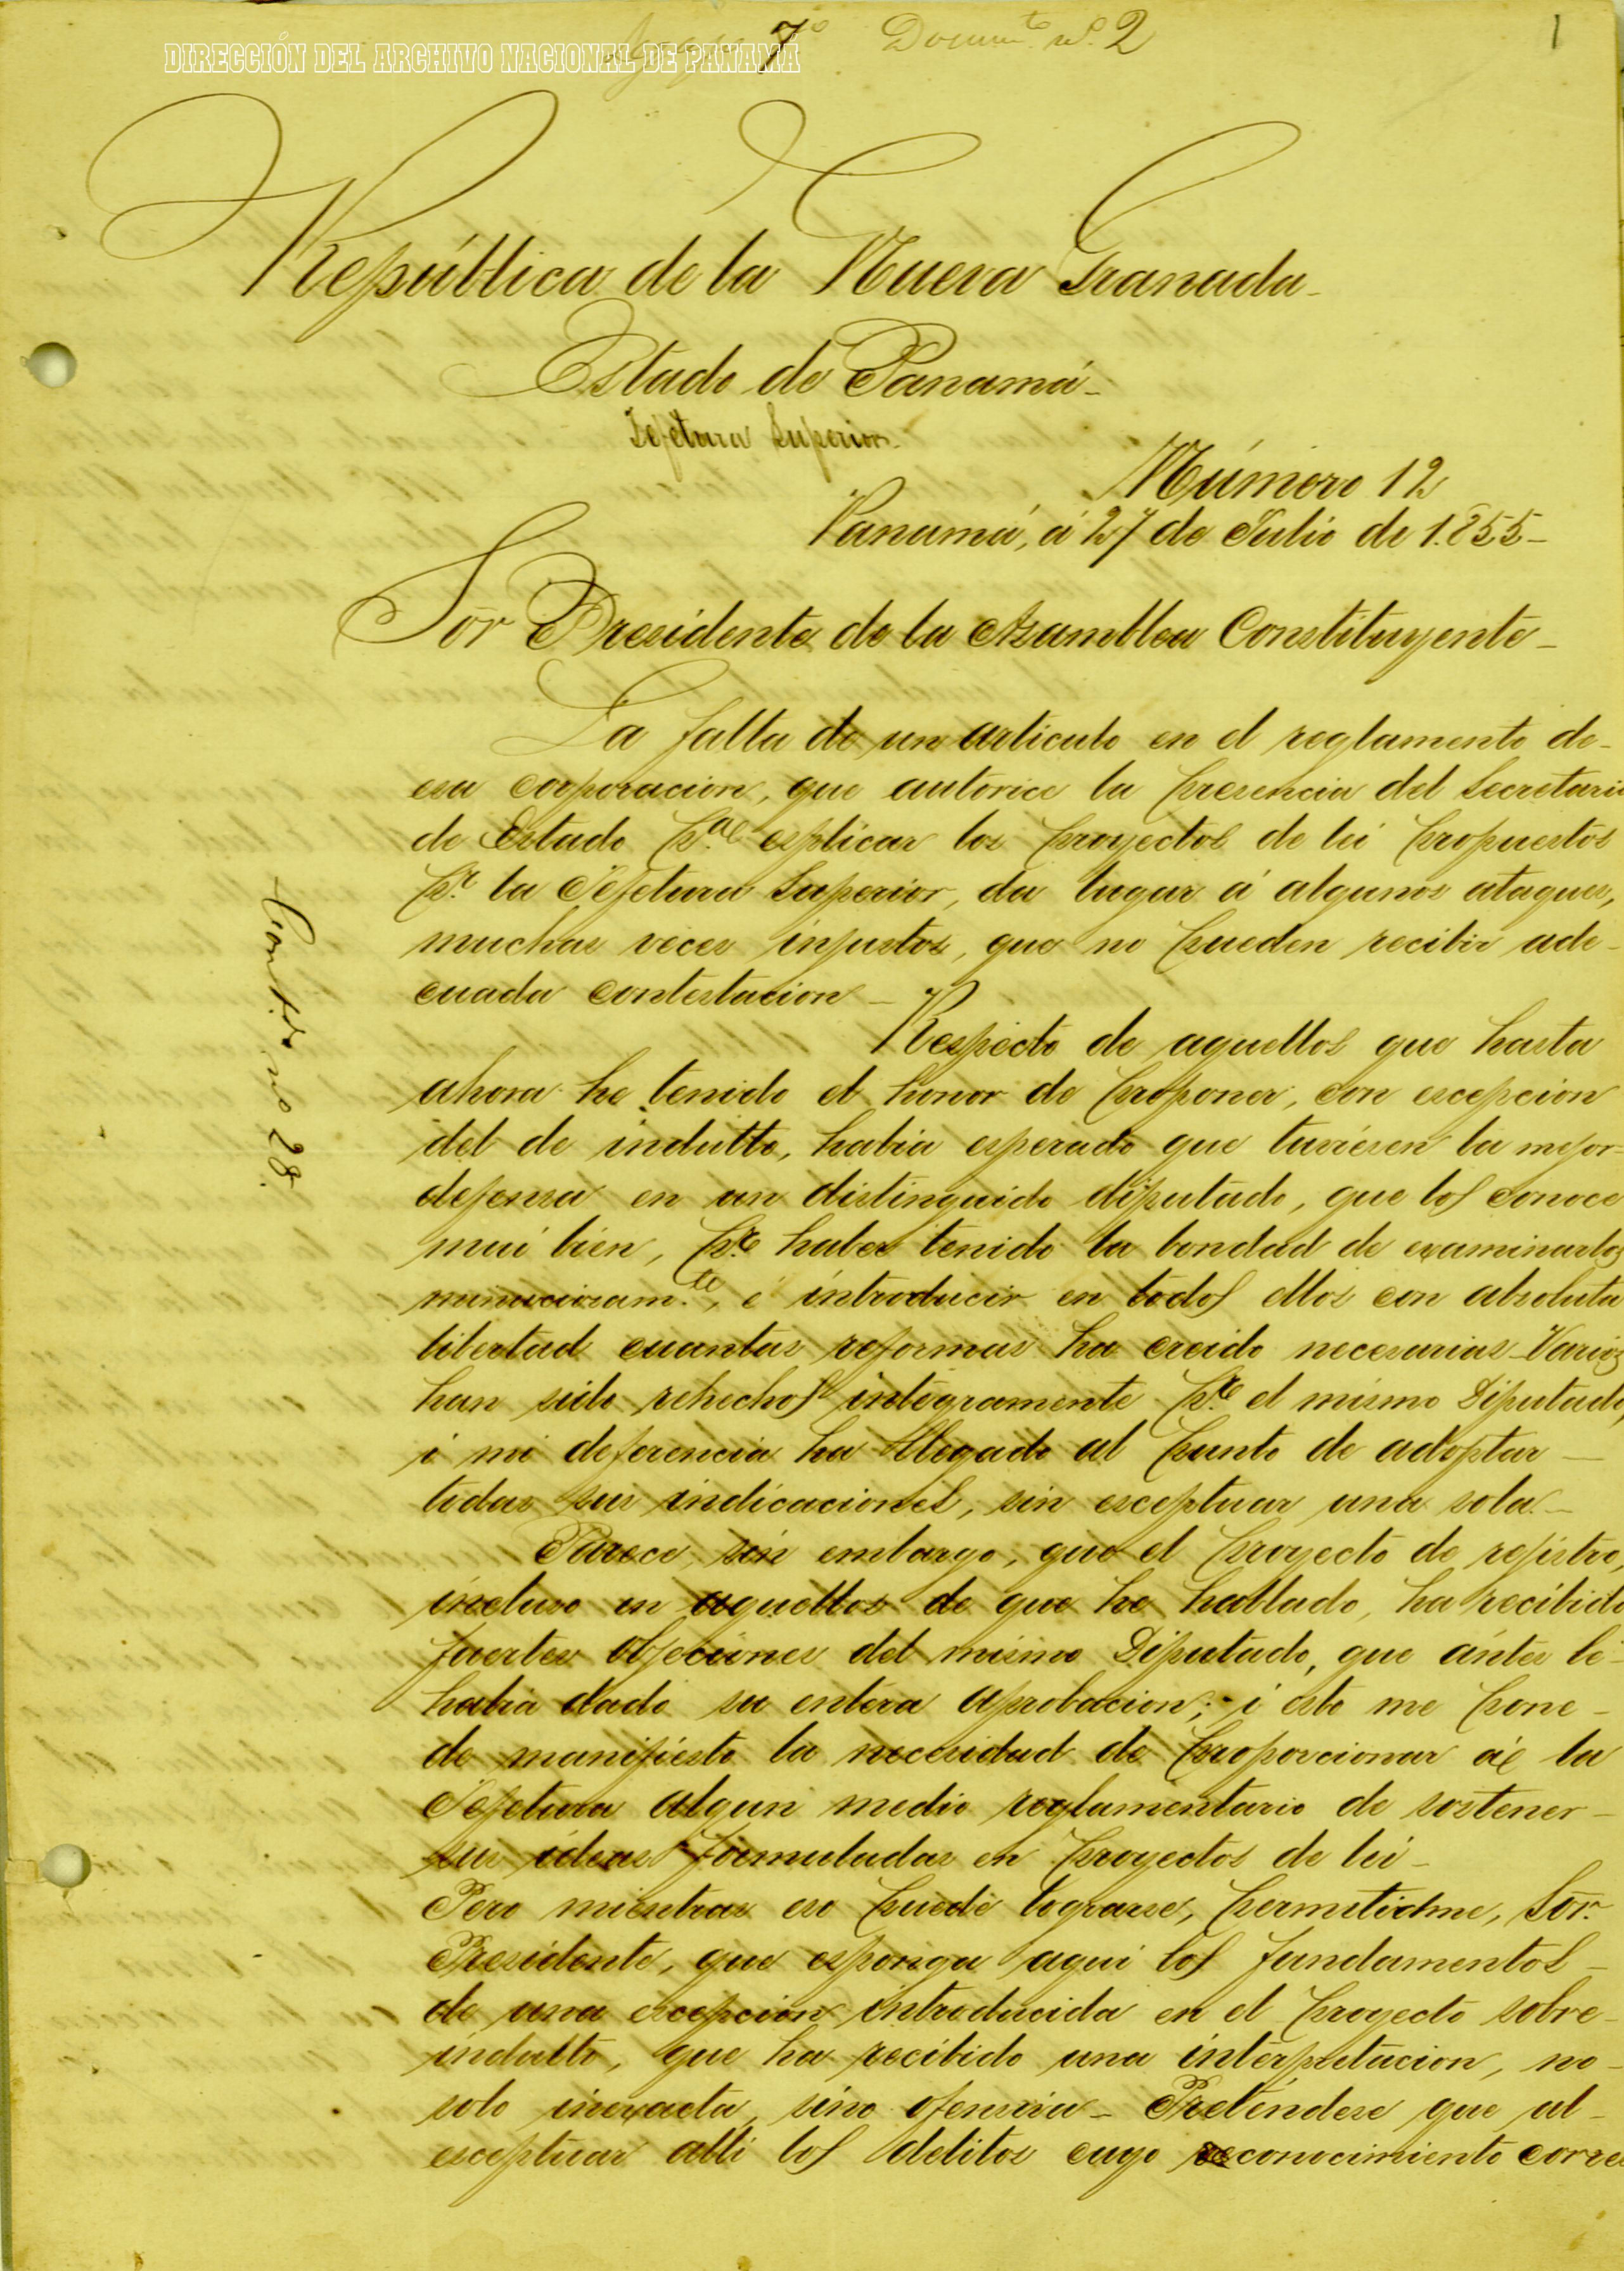 DIRECCIÓN DEL ARCHIVO NACIONAL DE PANAMA
7º Docum.to nº. 2
1
República de la Nueva Granada-
Estado de Panamá-
Jefetura Superior-
Número 12
Panamá, á 27 de Julio de 1.855-
Sor Presidente de la Asamblea Constituyente-
La falta de un articulo en el reglamento de-
esa corporacion, que autorice la presencia del Secretario
de Estado p.a esplicar los proyectos de lei propuestos
p.r la Jefetura Superior, da lugar á algunos ataques,
muchas veces injustos, que no pueden recibir ade-
cuada contestacion-
Respecto de aquellos que hasta
ahora he tenido el honor de proponer, con escepcion
del de indulto, habia esperado que tuviesen la mejor-
defensa en un distinguido diputado, que los conoce
mui bien, p.r haber tenido la bondad de examinarlos
minuciosam.te, é introducir en todos ellos con absoluta
libertad cuantas reformas ha creido necesarias- Varios
han sido rehechos integramente p.r el mismo Diputado,
i mi deferencia ha llegado al punto de adoptar-
todas sus indicaciones, sin esceptuar una sola.-
Parece, sin embargo, que el proyecto de rejistro,
incluso en aquellos de que he hablado, ha recibido
fuertes objeciones del mismo Diputado, que ántes le-
habia dado su entera aprobacion; i esto me pone-
de manifiesto la necesidad de proporcionar á la
Jefetura algun medio reglamentario de sostener-
sus ideas formuladas en proyectos de lei-
Pero mientras eso puede lograrse, permitidme, Sor.
Presidente, que esponga aqui los fundamentos-
de una escepcion introducida en el proyecto sobre-
indulto, que ha recibido una interpretacion, no-
solo inexacta, sino ofensiva- Preténdese que al-
esceptuar alli los delitos cuyo reconocimiento corres
nº 28.